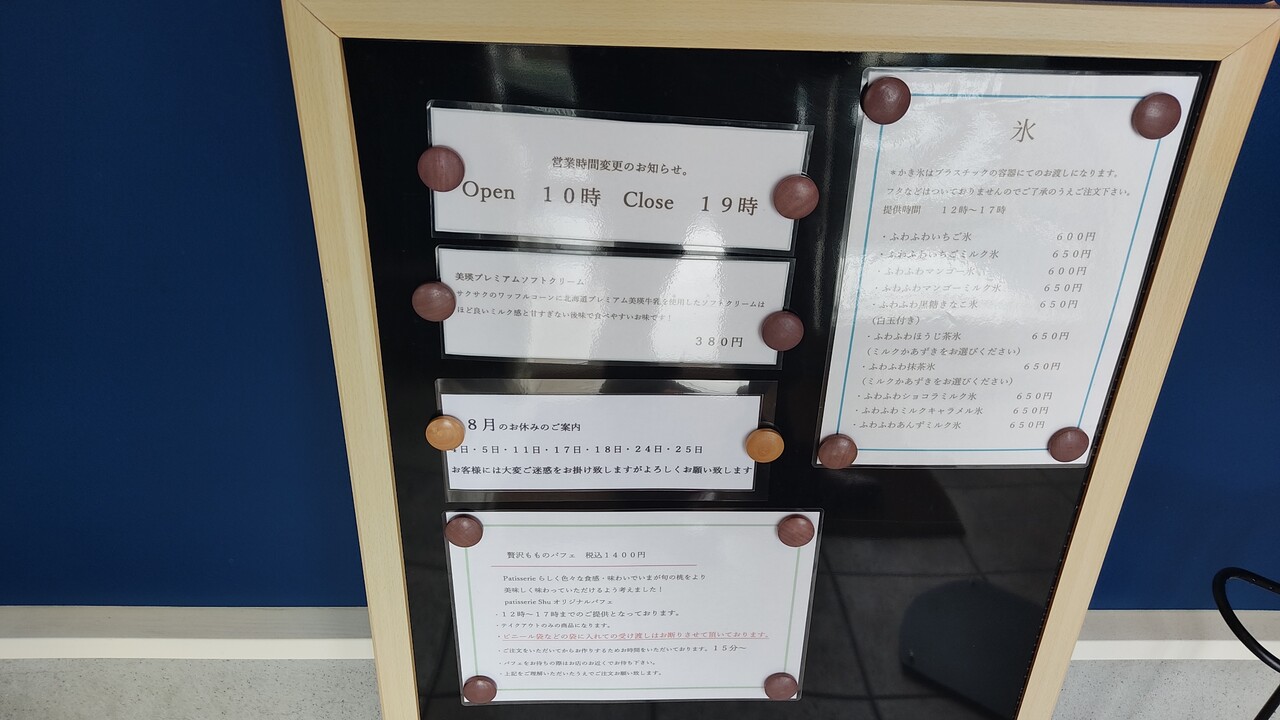 営業時間変更のお知らせ。
Open　１０時　Close　１９時
美瑛プレミアムソフトクリーム
サクサクのワッフルコーンに北海道プレミアム美瑛牛乳を使用したソフトクリームは
ほど良いミルク感と甘すぎない後味で食べやすいお味です！
３８０円
８月のお休みのご案内
日・５日・１１日・１７日・１８日・２４日・２５日
お客様には大変ご迷惑をお掛け致しますがよろしくお願い致します
贅沢もものパフェ　税込１４００円
Patisserie らしく色々な食感・味わいでいまが旬の桃をより
美味しく味わっていただけるよう考えました！
patisserie Shu オリジナルパフェ
・１２時～１７時までのご提供となっております。
・テイクアウトのみの商品になります。
・ビニール袋などの袋に入れての受け渡しはお断りさせて頂いております。
・ご注文をいただいてからお作りするためお時間をいただいております。１５分～
・パフェをお待ちの際はお店のお近くでお待ち下さい。
・上記をご理解いただいたうえでご注文お願い致します。
氷
＊かき氷はプラスチックの容器にてのお渡しになります。
フタなどはついておりませんのでご了承のうえご注文下さい。
提供時間　１２時～１７時
・ふわふわいちご氷　６００円
・ふわふわいちごミルク氷　６５０円
・ふわふわマンゴー氷　６００円
・ふわふわマンゴーミルク氷　６５０円
・ふわふわ黒糖きなこ氷　６５０円
（白玉付き）
・ふわふわほうじ茶氷　６５０円
（ミルクかあずきをお選びください）
・ふわふわ抹茶氷　６５０円
（ミルクかあずきをお選びください）
・ふわふわショコラミルク氷　６５０円
・ふわふわミルクキャラメル氷　６５０円
・ふわふわあんずミルク氷　６５０円